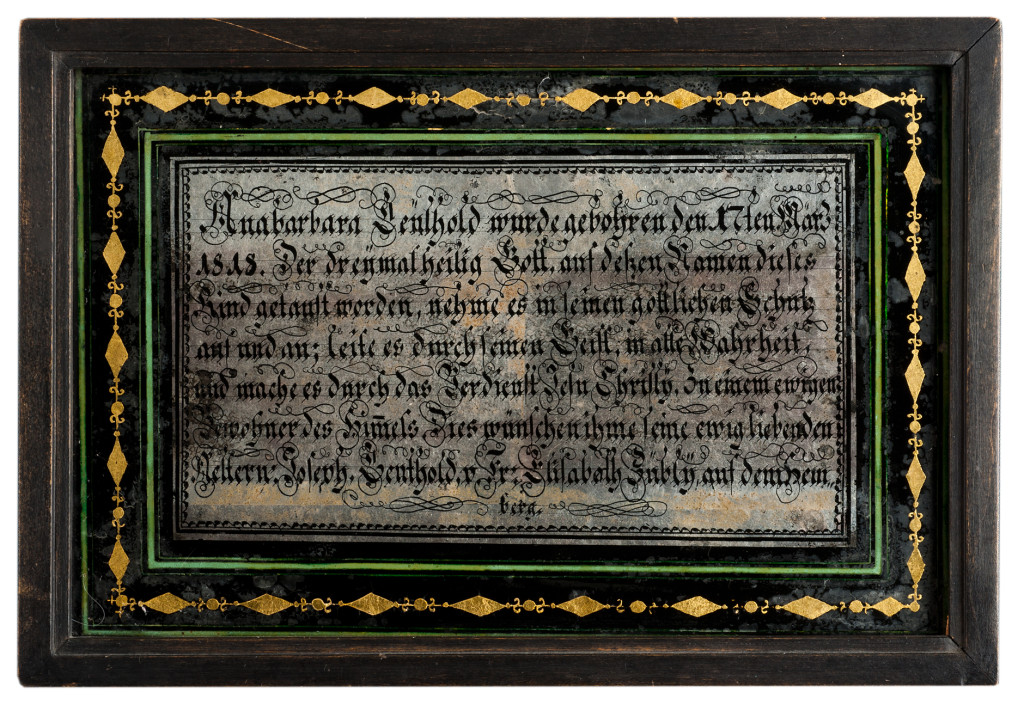 Anabarbara Leüthold wurde gebohren den 17ten März
1818. Der dreymal heilig Gott, auf deßen Namen dieses
Kind getauft worden, nehme es in seinen göttlichen Schutz
auf und an; leite es durch seinen Geist, in alle Wahrheit,
und mache es durch das Verdienst Jesu Christÿ. Zu einem ewigen
Bewohner des Him̄els Dies wünschen ihme seine ewig liebenden
Aeltern: Joseph, Leuthold v Fr: Elisabeth Zublÿ, auf dem
berg.